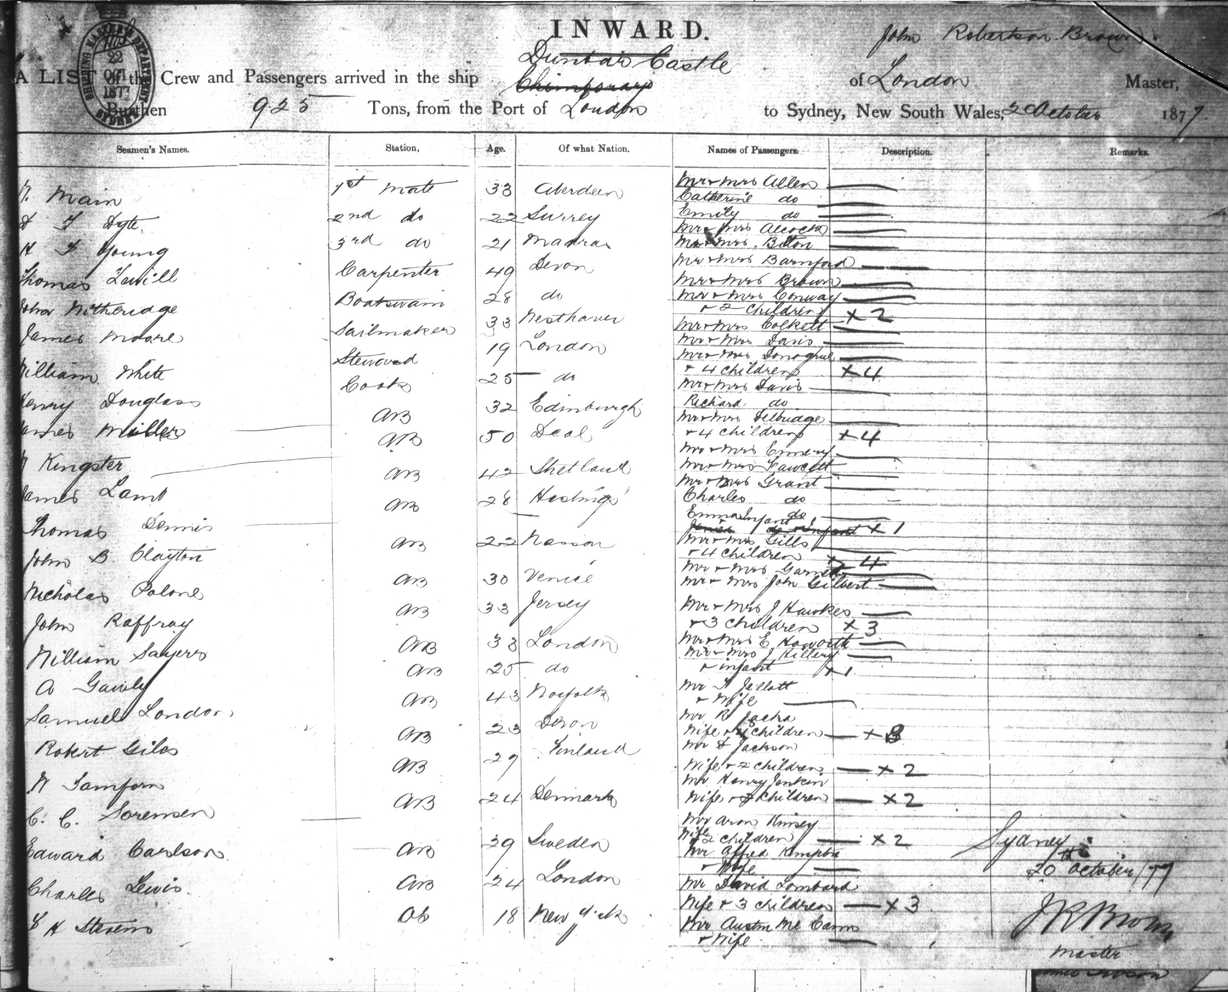 INWARD.
John Robertson Brown
Dunbar Castle
A LIST of the Crew and Passengers arrived in the ship of London Master,
Burthen 923 Tons, from the Port of London to Sydney, New South Wales, 2 October 1877
SHIPPING MASTER'S DEPARTMENT
22
OCT
1877
SYDNEY
Seamen's Names. Station. Age. Of what Nation. Names of Passengers. Description. Remarks.
Main 1st Mate 33 Aberdeen
Dyte 2nd do 22 Surrey
H T Young 3rd do 21 Madras
Thomas Carpenter 49 Devon
John Witheridge Boatswain 28 do
James Moore Sailmaker 33 Westhaven
William White Steward 19 London
Henry Douglass Cook 25 do
James Miller AB 32 Edinburgh
Kingster AB 50 Deal
James Lamb AB 42 Shetland
Thomas Dennis AB 28 Hastings
John B. Clayton AB 22 Nassau
Nicholas Polone AB 30 Venice
John Raffray AB 33 Jersey
William Sayers AB 33 London
A Gawley AB 25 do
Samuel London AB 43 Norfolk
Robert Giles AB 23 Devon
AB 29 Finland
C. C. Sorensen AB 24 Denmark
Edward Carlson AB 39 Sweden
Charles Lewis AB 24 London
H Stevens OS 18 New York
Mr & Mrs Allen
Catherine do
Emily do
Mr & Mrs Alcock
Mr & Mrs Bolton
Mr & Mrs Barnford
Mr & Mrs Brown
Mr & Mrs Conway
& 2 children x 2
Mr & Mrs Cockett
Mr & Mrs Davis
Mr & Mrs Donoghue
& 4 children x 4
Mr & Mrs Davis
Richard do
Mr & Mrs Delbridge
& 4 children x 4
Mr & Mrs Emmery
Mr & Mrs Fawcett
Mr & Mrs Grant
Charles do
Emma Infant do
x 1
Mr & Mrs Gills
& 4 children x 4
Mr & Mrs
Mr & Mrs John Gilbert
Mr & Mrs J Hawkes
& 3 children x 3
Mr & Mrs E Haworth
Mr & Mrs J Hillery
& infant x 1
Mr
& Wife
Mr R Jacka
Wife & children
Mr H Jackson
Wife & 2 children x 2
Mr Henry Jenkin
Wife & 2 children x 2
Mr Aron Kinsey
Wife & 2 children x 2
Mr Alfred
& Wife
Mr David Lombard
Wife & 3 children x 3
Mr Austin Mc Cann
& Wife
Sydney
20th October /77
J R Brown
Master